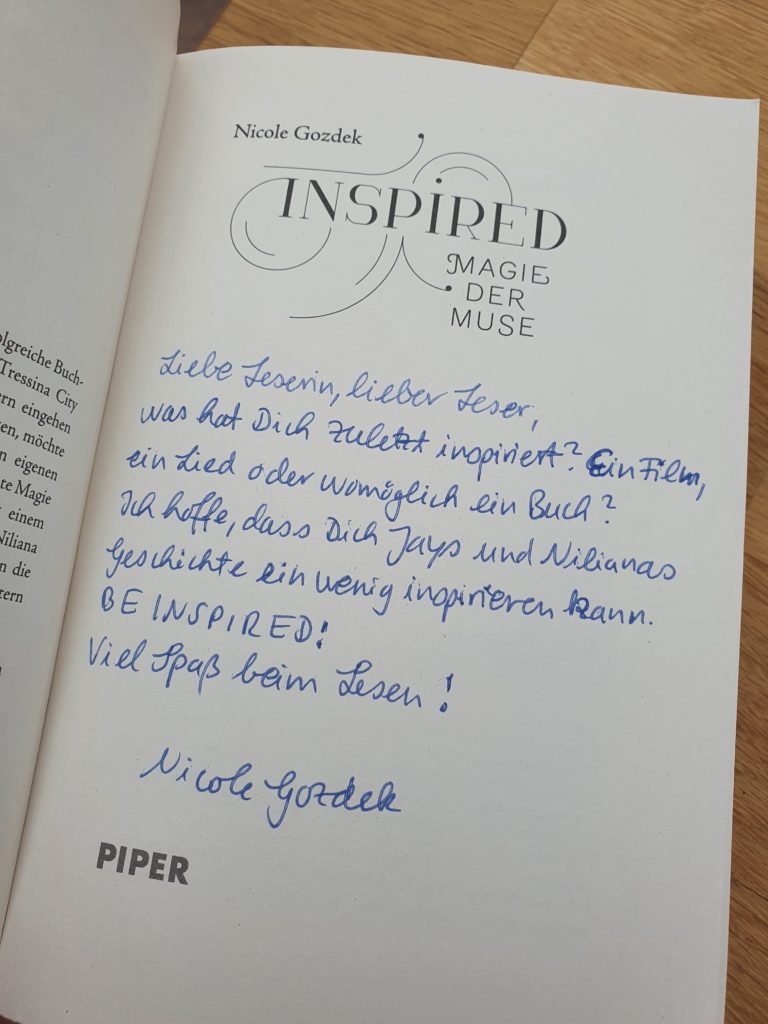 Nicole Gozdek
INSPIRED
MAGIE
DER
MUSE
Liebe Leserin, lieber Leser,
was hat Dich zuletzt inspiriert? Ein Film,
ein Lied oder womöglich ein Buch?
Ich hoffe, dass Dich Jays und Nilianas
Geschichte ein wenig inspirieren kann.
BE INSPIRED!
Viel Spaß beim Lesen!
Nicole Gozdek
PIPER
olgreiche Buch-
Tressina City
ern eingehen
en, möchte
n eigenen
te Magie
einem
Niliana
n die
tern